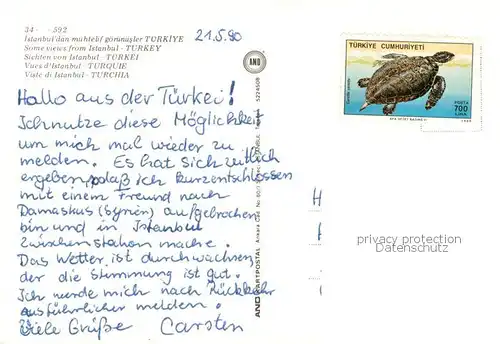 34 - 592
İstanbul'dan muhtelif görünüşler TÜRKİYE
Some views from Istanbul - TURKEY
Sichten von Istanbul - TÜRKEI
Vues d'Istanbul - TURQUIE
Viste di Istanbul - TURCHIA
21.5.90
AND
TÜRKİYE CUMHURİYETİ
POSTA
700
LİRA
Hallo aus der Türkei!
Ich nutze diese Möglichkeit
um mich mal wieder zu
melden. Es hat sich zeitlich
ergeben, daß ich kurzentschlossen
mit einem Freund nach
Damaskus (Syrien) aufgebrochen
bin und in Istanbul
Zwischenstation mache.
Das Wetter ist durchwachsen,
der die Stimmung ist gut.
Ich werde mich nach Rückkehr
ausführlicher melden.
Viele Grüße Carsten
AND KARTPOSTAL
privacy protection
Datenschutz